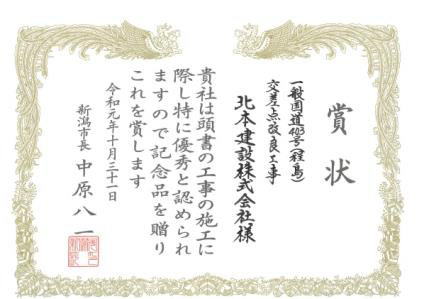 賞状
一般国道403号(程島)
交差点改良工事
北本建設株式会社様
貴社は頭書の工事の施工に
際し特に優秀と認められ
ますので記念品を贈り
これを賞します
令和元年十月三十一日
新潟市長 中原八一